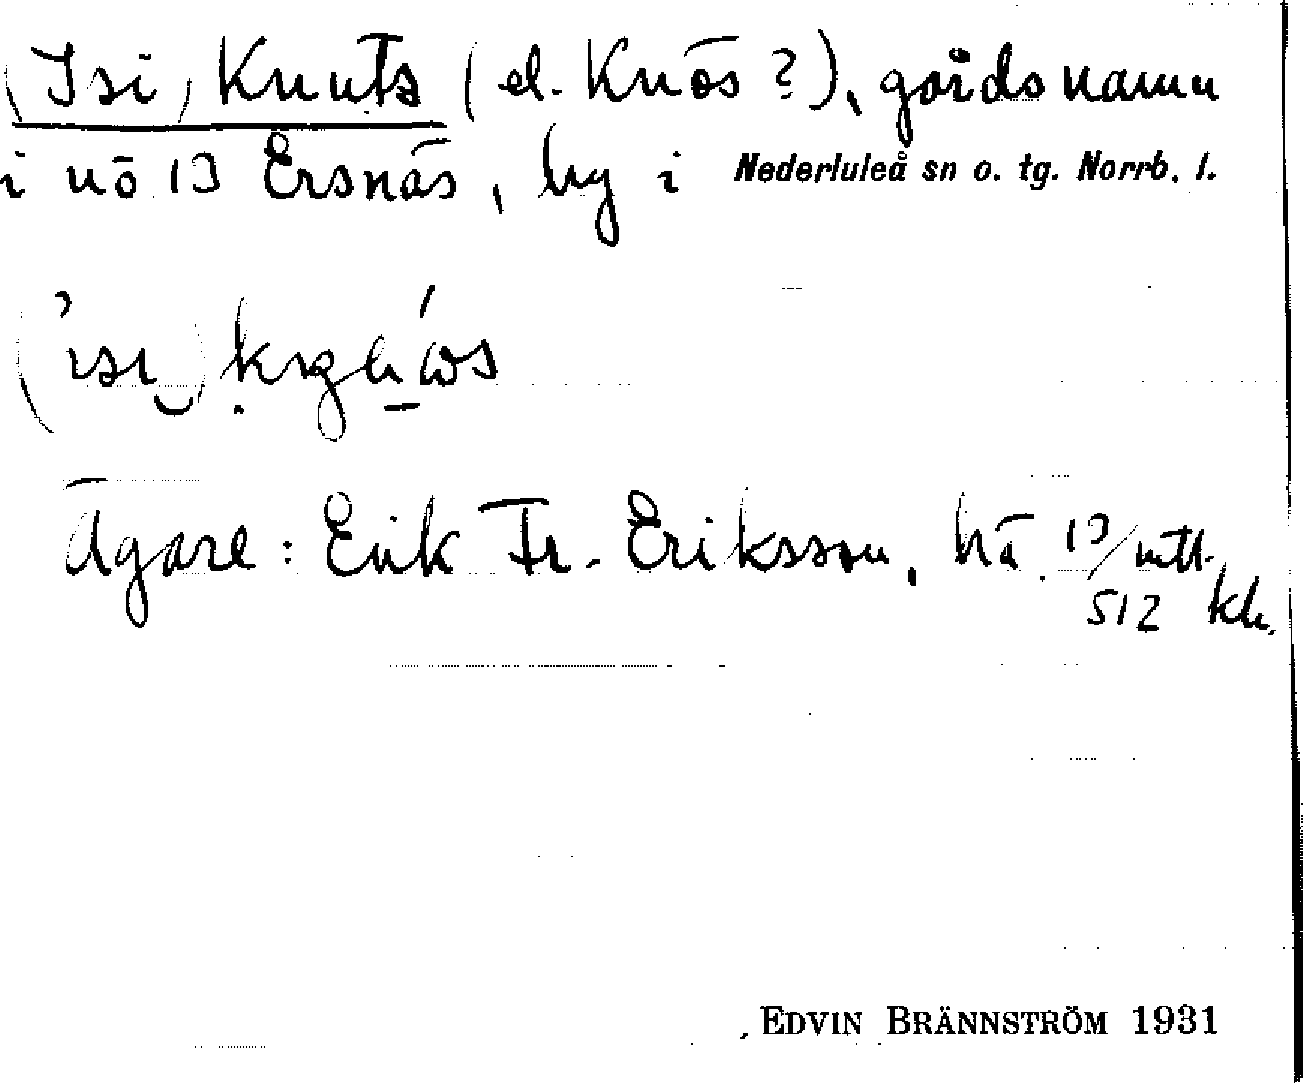 (Isi) Knuts (el. Knös ?), gårdsnamn
i nö 13 Ersnäs, by i Nederluleå sn o. tg. Norrb. l.
Ägare: Erik Fr. Eriksson, hä 13/512 mtl. kh.
EDVIN BRÄNNSTRÖM 1931